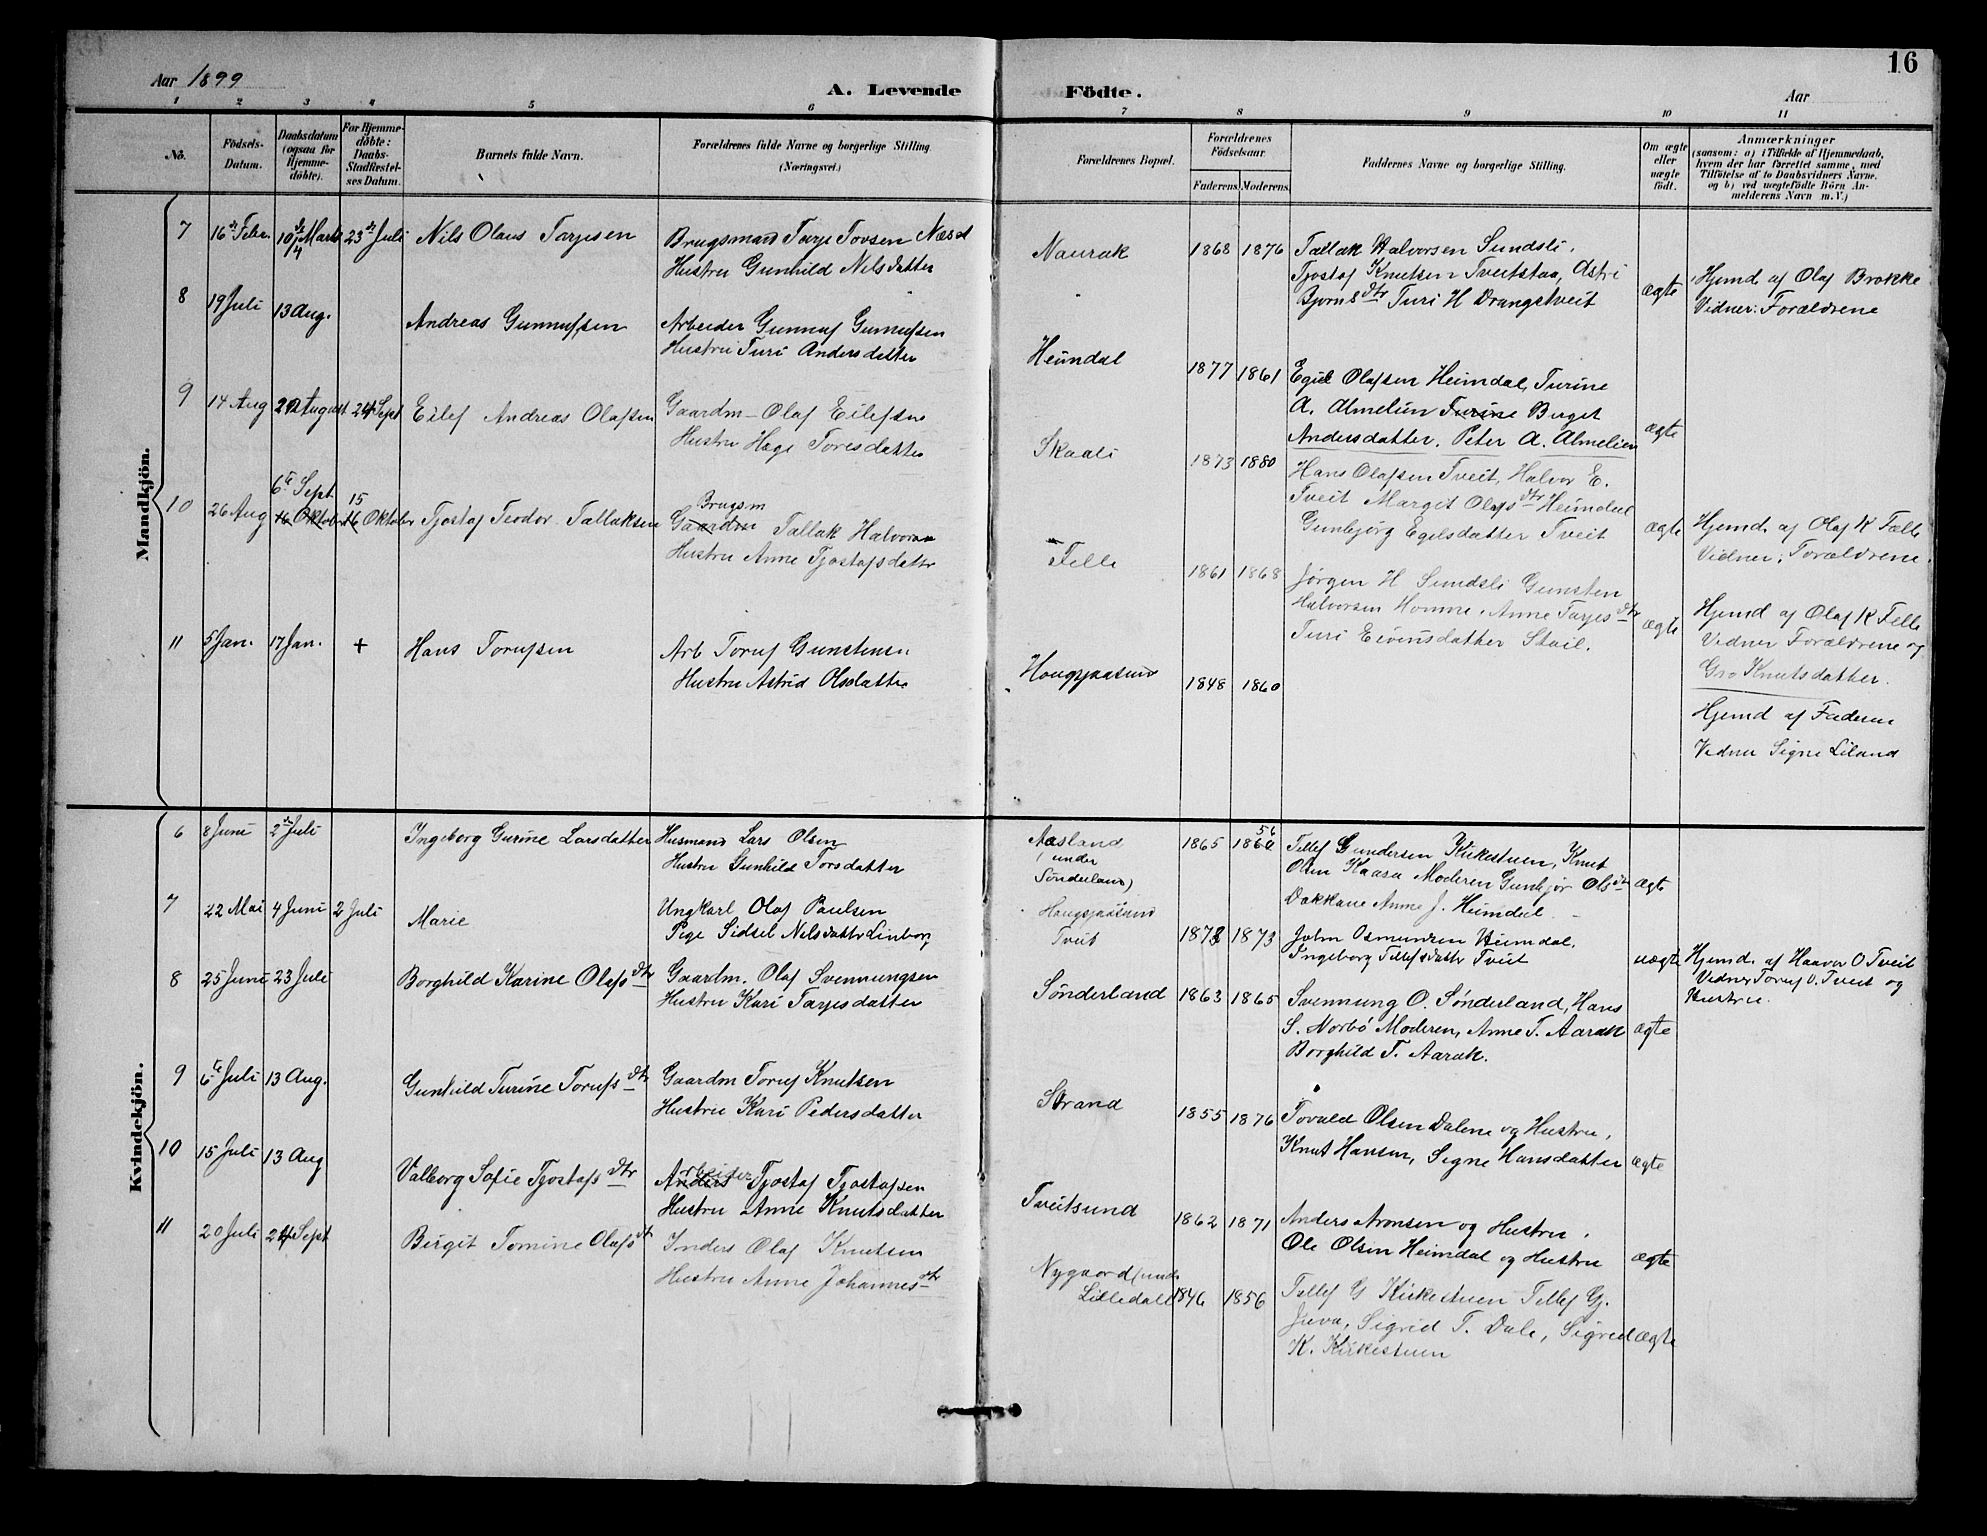 16
Aar 1899
A. Levende
Födte.
Aar
1 2 3 4 5 6 7 8 9 10 11
No.
Födsels-
Datum.
Daabsdatum
(ogsaa for
Hjemme-
döbte).
For Hjemme-
döbte:
Daabs-
Stadfæstel-
ses Datum.
Barnets fulde Navn.
Forældrenes fulde Navne og borgerlige Stilling.
(Næringsvei.)
Forældrenes Bopæl.
Forældrenes
Födselsaar.
Faderens. Moderens.
Faddernes Navne og borgerlige Stilling.
Om ægte
eller
uægte
födt.
Anmærkninger
(saasom: a) i Tilfælde af Hjemmedaab,
hvem der har forrettet samme, med
Tilföielse af to Daabsvidners Navne,
og b) ved uægtefödte Börn An-
melderens Navn m. V.)
Mandkjön.
7 16de Febr. 10de Marts 23de Juli Nils Olaus Tarjesen
Brugsmand Tarje Tovsen Næs
Hustru Gunhild Nilsdatter
Naurak 1868 1876
Tallak Halvorsen Sundsli,
Tjostof Knutsen Tveitstaa, Astri
Bjørnsdtr Turi H Drangstveit
ægte
Hjemd. af Olaf Brokke
Vidner: Forældrene
8 19 Juli 13 Aug. Andreas Gunnufsen
Arbeider Gunnuf Gunnufsen
Hustru Turi Andersdatter
Heimdal 1877 1861
Egil Olafsen Heimdal, Turine
A. Almelien Turine Birget
Andersdatter. Peter A. Almelien
ægte
9 14 Aug August 24 Sept Eilef Andreas Olafsen
Gaardm Olaf Eilefsen
Hustru Hæge Toresdatter
Skaali 1873 1880
Hans Olafsen Tveit, Halvor E.
Tveit Margit Olafsdtr Heimdal
Gunbjørg Egelsdatter Tveit
ægte
Hjemd. af Olaf K Felle
Vidner: Forældrene.
10 26 Aug 6te Sept 16 Oktober 15 16 Oktober Tjostof Teodor Tallaksen
Brugsm
Gaardm Tallak Halvorsen
Hustru Anne Tjostofsdatter
Felle 1861 1868
Jørgen H Sundsli Gunsten
Halvorsen Homme, Anne Tarjesdtr
Turi Eivensdatter Stail.
ægte
Hjemd af Olaf K Felle
Vidner Forældrene og
Gro Knutsdatter.
11 5 Jan. 17 Jan. + Hans Torufsen
Arb Toruf Gunstensen
Hustru Astrid Olsdatter
Hougsjaasund 1848 1860
Hjemd af Faderen
Vidne Signe Liland
Kvindekjön.
6 8 Juni 2de Juli Ingeborg Gurine Larsdatter
Husmand Lars Olsen
Hustru Gunhild Torsdatter
Aasland
(under
Sønderland)
1865 56
Tellef Gundersen Kirkestuen, Knut
Olsen Kaasa Moderen Gunbjør Olsdtr
Dakkane Anne J. Heimdal
ægte
7 22 Mai 4 Juni 2 Juli Marie
Ungkarl Olaf Paulsen
Pige Sidsel Nilsdatter
Hougsjaasund
Tveit 1873
John Osmundsen Heimdal.
Ingeborg Tellefsdatter Tveit
uægte
Hjemd. af Haavor O Tveit
Vidner Toruf O. Tveit og
Hustru.
8 25 Juni 23 Juli Borghild Karine Olafsdtr
Gaardm. Olaf Svennungsen
Hustru Kari Tarjesdatter
Sønderland 1863 1865
Svennung O. Sønderland, Hans
S. Norbø Moderen, Anne T. Aarak
Borghild T. Aarak.
ægte
9 6te Juli 13 Aug. Gunhild Turine Torufsdtr
Gaardm Toruf Knutsen
Hustru Kari Pedersdatter
Strand 1855 1876
Torald Olsen Dalene og Hustru,
Knut Hansen, Signe Hansdatter
ægte
10 15 Juli 13 Aug Valborg Sofie Tjostofsdtr
Arbeider Tjostof Tjostofsen
Hustru Anne Knutsdatter
Tveitsund 1862 1871
Anders Aronsen og Hustru,
Ole Olsen Heimdal og Hustru
ægte
11 20 Juli 24 Sept Birgit Tomine Olafsdt
Inders Olaf Knutsen
Hustru Anne Johannesdtr
Nygaard (und.
Lilledal) 1846 1856
Tellef G Kirkestuen Tellef Gj.
Juva, Sigrid T. Dale, Sigrid
K. Kirkestuen
ægte